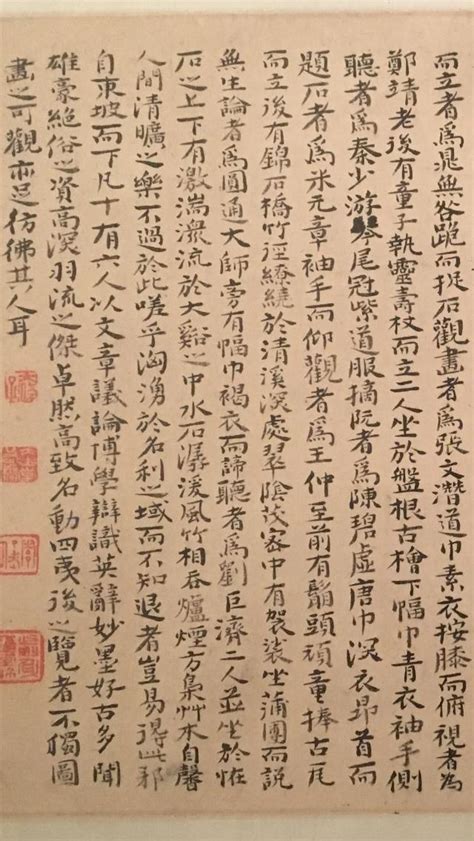 而立者爲晁無咎跪而捉石觀畫者爲張文潛道巾素衣按膝而俯視者爲
鄭靖老後有童子執靈壽杖而立二人坐於盤根古檜下幅巾青衣袖手側
聽者爲秦少游琴尾冠紫道服摘阮者爲陳碧虛唐巾深衣昂首而
題石者爲米元章袖手而仰觀者爲王仲至前有鬅頭頑童捧古瓦
而立後有錦石橋竹徑繚繞於清溪深處翠陰茂密中有袈裟坐蒲團而說
無生論者爲圓通大師旁有幅巾褐衣而諦聽者爲劉巨濟二人並坐於怪
石之上下有激湍潨流於大谿之中水石潺湲風竹相吞爐煙方裊艸木自馨
人間清曠之樂不過於此嗟乎洶湧於名利之域而不知退者豈易得此邪
自東坡而下凡十有六人以文章議論博學辯識英辭妙墨好古多聞
雄豪絕俗之資高深羽流之傑卓然高致名動四夷後之覽者不獨圖
畫之可觀亦足彷彿其人耳